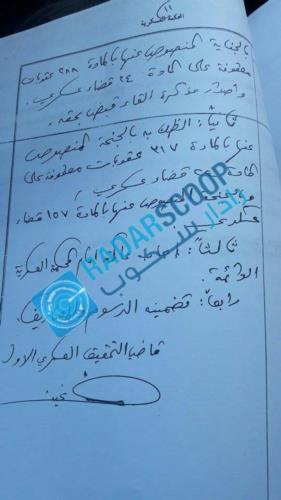 ١١
المحكمة العسكرية
بالجناية المنصوص عنها بالمادة ٢٨٨ عقوبات
معطوفة على المادة ٢٤ قضاء عسكري.
واصدار مذكرة القاء قبض بحقه.
ثانياً: الظن به بالجنحة المنصوص
عنها بالمادة ٣١٧ عقوبات معطوفة على
المادة قضاء عسكري
المنصوص عنها بالمادة ١٥٧ قضاء
عسكري.
ثالثاً: امام المحكمة العسكرية
الدائمة.
رابعاً: تضمينه الرسوم
قاضي التحقيق العسكري الاول
RADARSCOOP
رادار سكوب